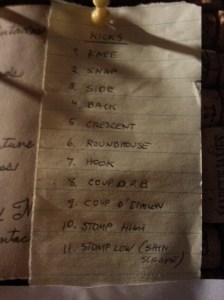 KICKS
1. KNEE
2. SNAP
3. SIDE
4. BACK
5. CRESCENT
6. ROUNDHOUSE
7. HOOK
8. COUP D
9. COUP D'
10. STOMP HIGH
11. STOMP LOW (SHIN
SCRAPE)